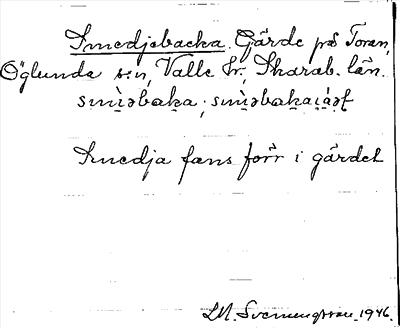 Smedjebacka. Gärde på Toran,
Öglunda s:n, Valle hr., Skarab. län.
smìəbaka, smìəbakaɪáət
Smedja fans förr i gärdet
LM. Svennungsson 1946.